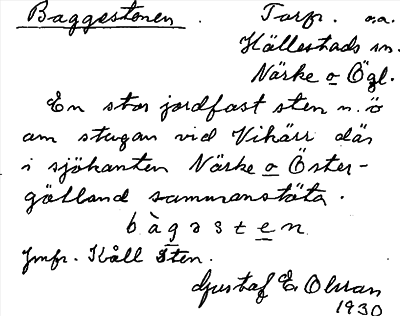 Baggestenen . Torp. o.a.
Hällestads sn.
Närke o Ögl.
En stor jordfast sten n.ö
om stugan vid Vihärr där
i sjökanten Närke o Öster-
götland sammanstöta.
b à g ə s t e n
Jmfr. Kåll Sten.
Gustaf E. Olsson
1930